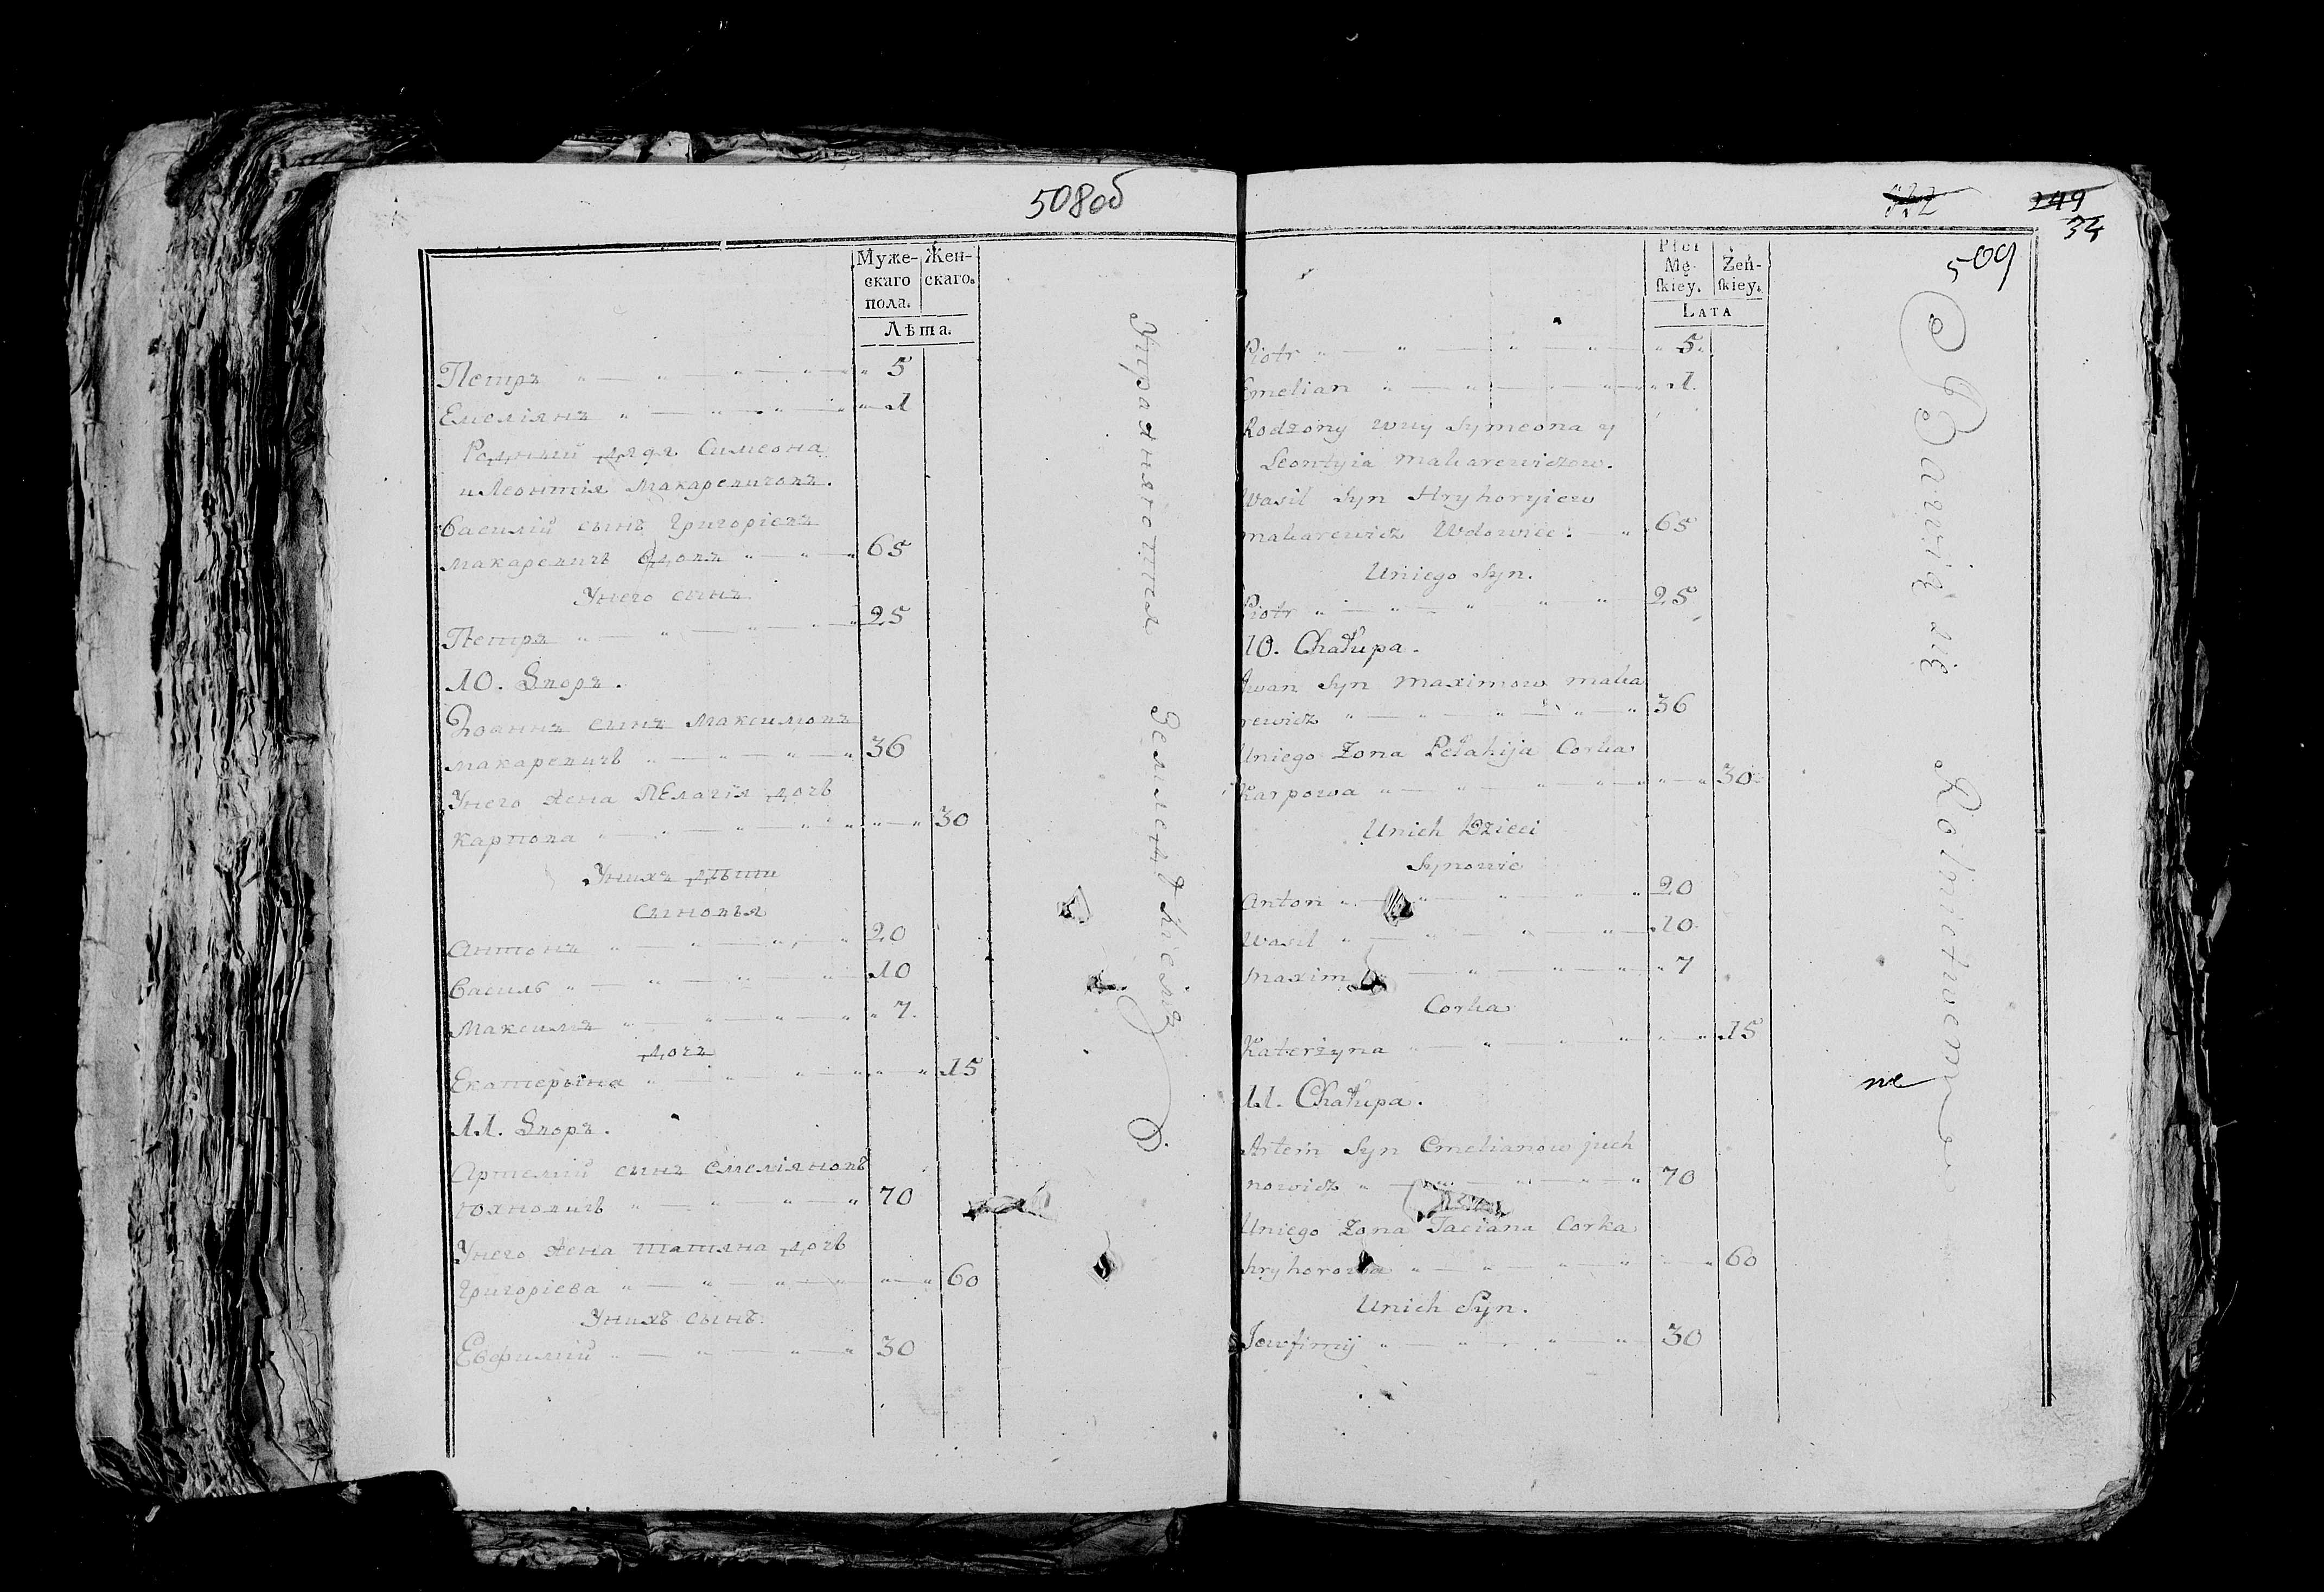 508об
Муже-
скаго
пола.
Жен-
скаго.
Лѣта.
Петръ 5
Емелiянъ 1
Родный дядя Симеона
и Леонтiя Макаревичовъ.
Василiй сынъ Григорiевъ
Макаревичъ вдовъ 65
У него сынъ
Петръ 25
10. Дворъ.
Iоаннъ сынъ Максимовъ
Макаревичъ 36
У него жена Пелагiя дочь
Карпова 30
У нихъ дѣти
Сыновья
Антонъ 20
Василь 10
Максимъ 7
дочъ
Екатерына 15
11. Дворъ.
Артемiй сынъ Емелiяновъ
Юхновичъ 70
У него жена Татяна дочь
Григорiева 60
У нихъ сынъ
Евфимiй 30
Упражняются Земледѣлiемъ
249
34
509
Płci
Mę-
skiey.
Żeń-
skiey.
Lata
Piotr 5
Emelian 1
Rodzony wuy Symeona y
Leontyia Makarewiczow.
Wasil Syn Hryhoryiew
Makarewicz Wdowiec 65
U niego Syn.
Piotr 25
10. Chałupa.
Iwan Syn Maximow Maka
rewicz 36
U niego Żona Pełahija Corka
Karpowa 30
U nich Dzieci
Synowie
Anton 20
Wasil 10
Maxim 7
Corka
Katerżyna 15
11. Chałupa.
Artem Syn Emelianow Juch
nowicz 70
U niego Żona Taciana Corka
Hryhorowa 60
U nich Syn.
Jewfimij 30
Bawią się Rolnictwem